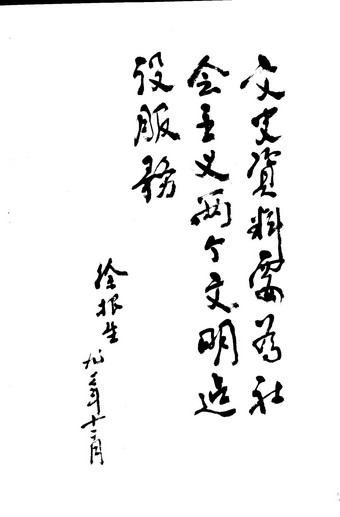 文史资料要為社
会主义两个文明建
设服務
徐根生
九三年十二月